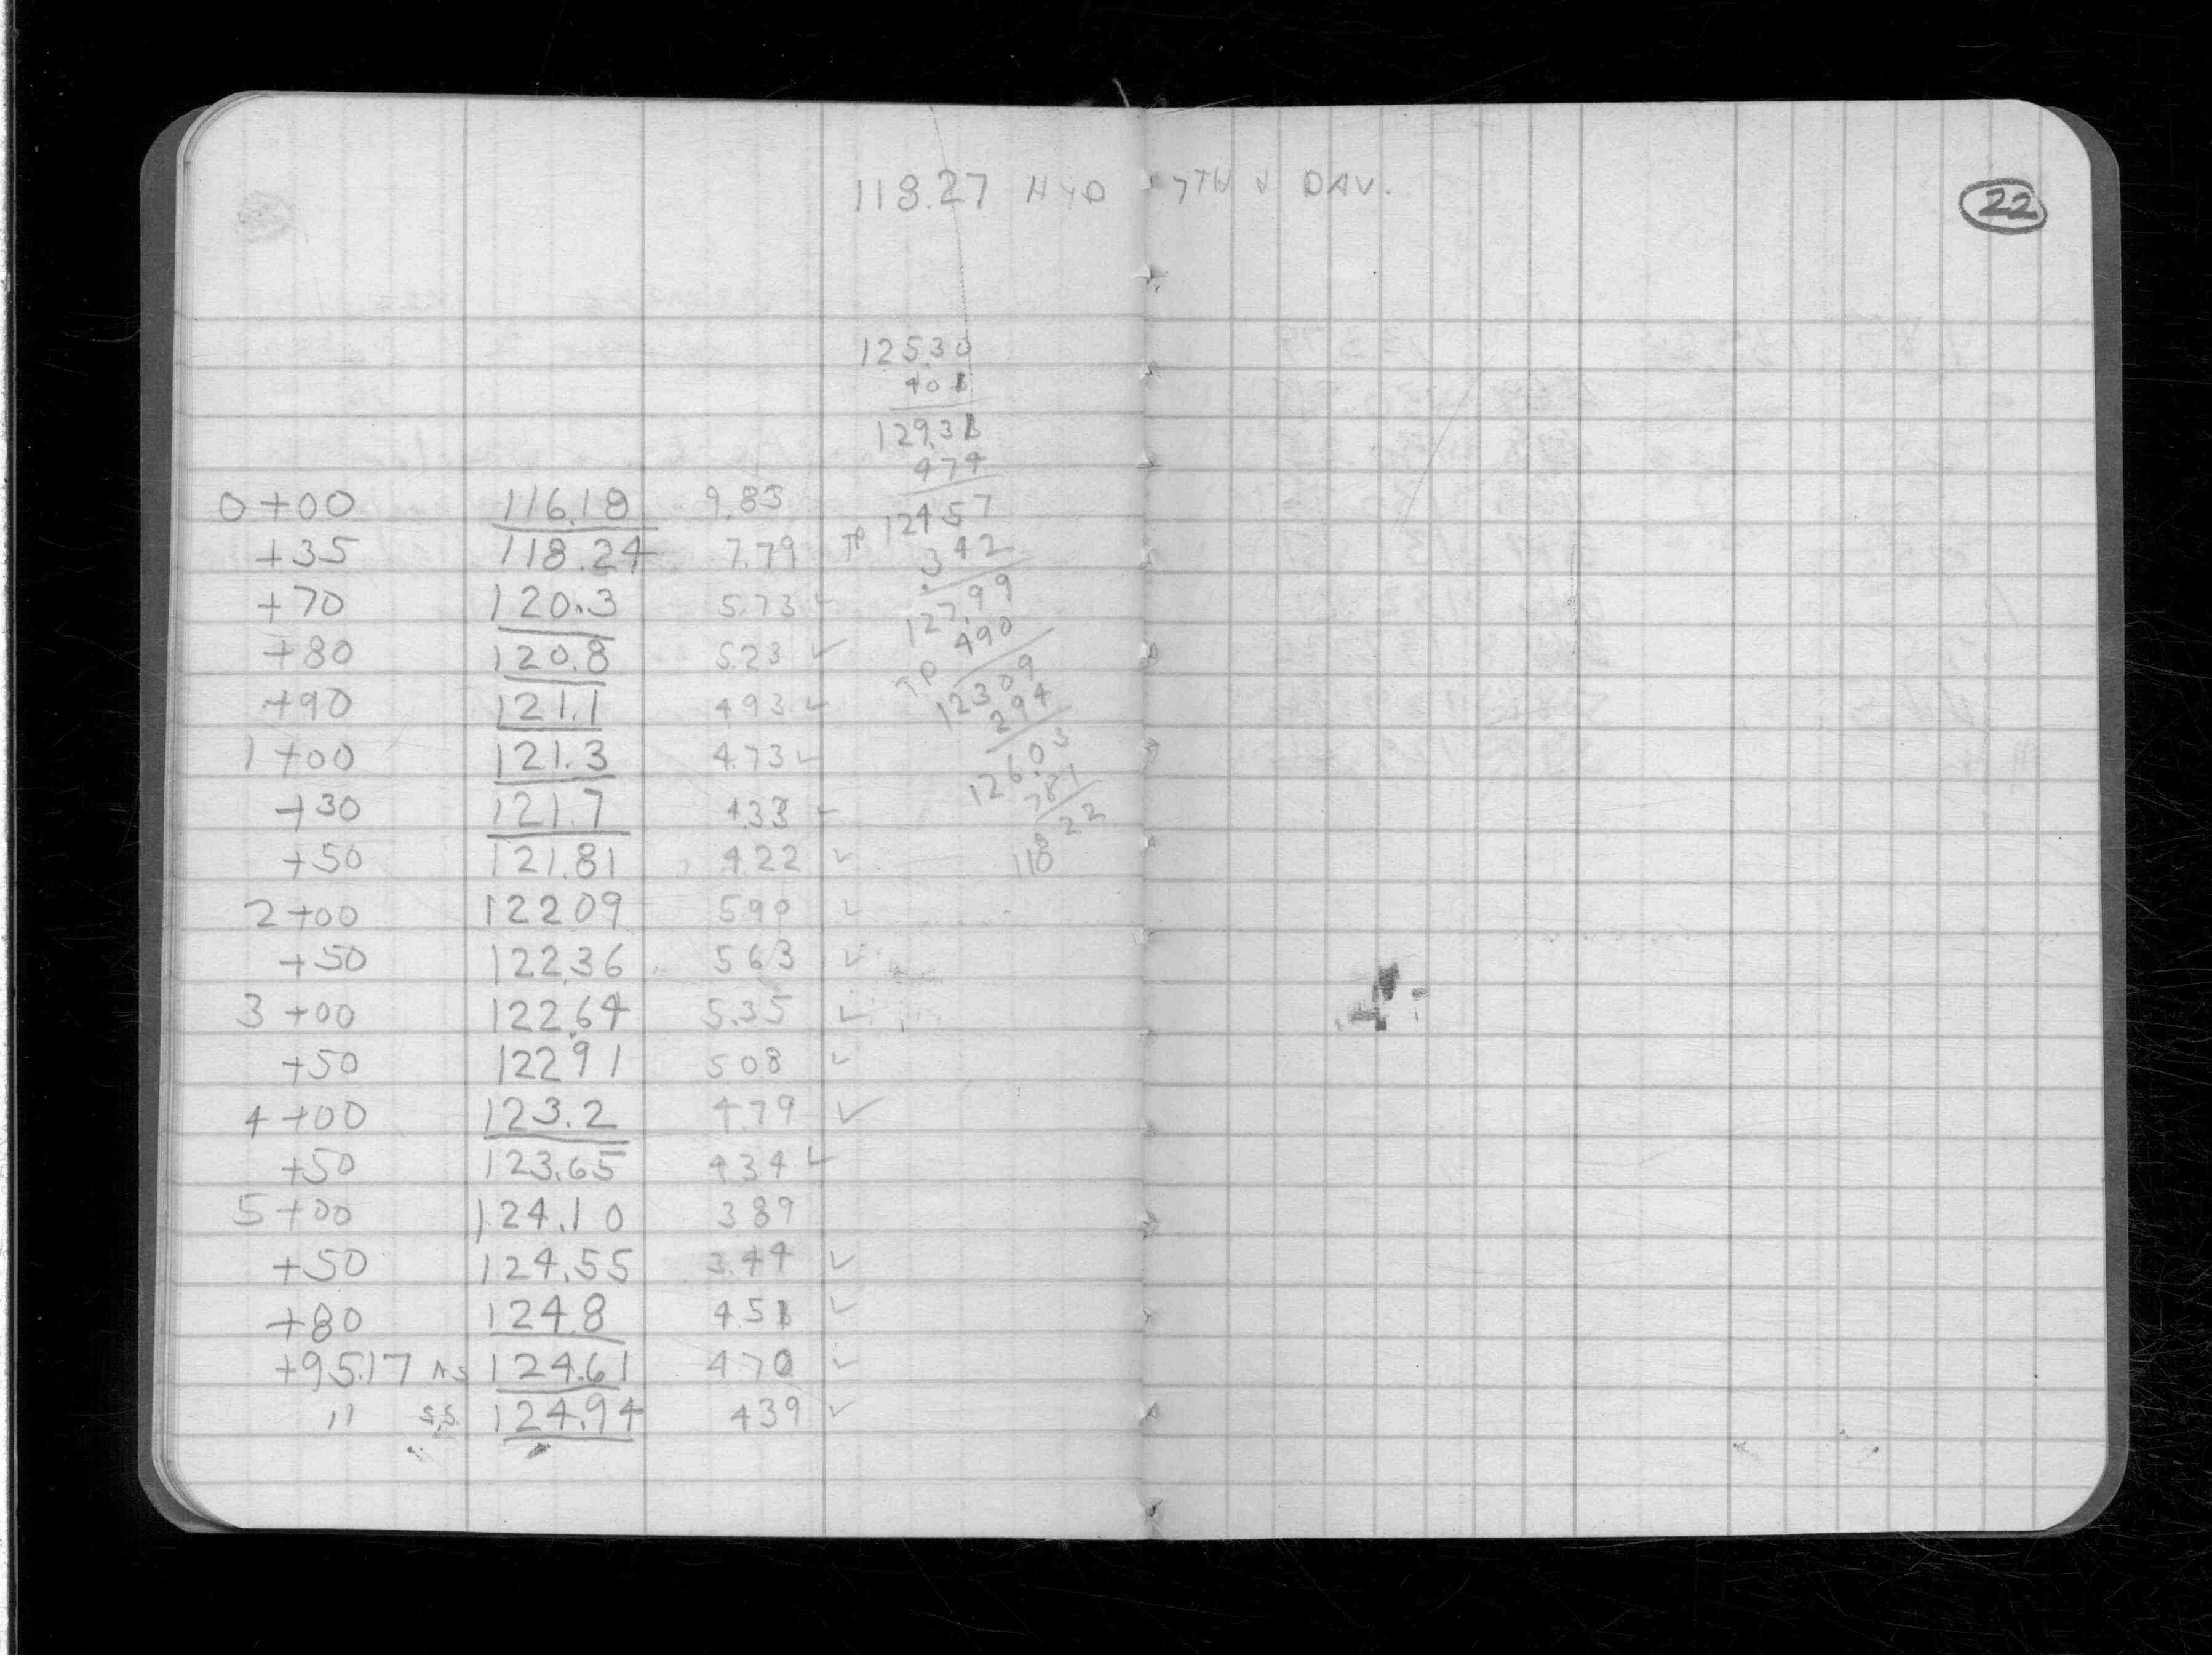 118.27 HYD 7TH & DAV.
22
125.30
401
129.31
474
TP 124 57
3 42
127.99
490
TP 123 09
294
126.03
781
118 22
0+00 116.18 9.83
+35 118.24 7.79
+70 120.3 5.73 ✓
+80 120.8 5.23 ✓
+90 121.1 4.93 ✓
1+00 121.3 4.73 ✓
+30 121.7 4.33 ✓
+50 121.81 4.22 ✓
2+00 122 09 5.90 ✓
+50 122.36 5 63 ✓
3+00 122.64 5.35 ✓
+50 122 91 5 08 ✓
4+00 123.2 4.79 ✓
+50 123.65 4 34 ✓
5+00 124.10 3 89
+50 124.55 3.44 ✓
+80 124.8 4 51 ✓
+95.17 N.S 124.61 4 70 ✓
" S.S. 124.94 4 39 ✓